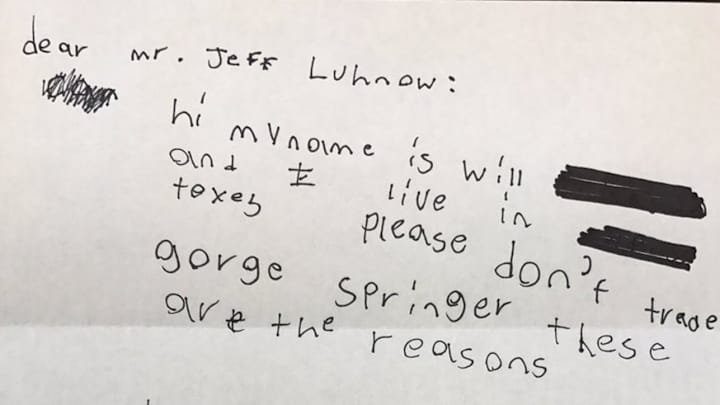 dear mr. Jeff Luhnow:
hi my name is will
and I live in
texes please don't trade
gorge springer these
are the reasons